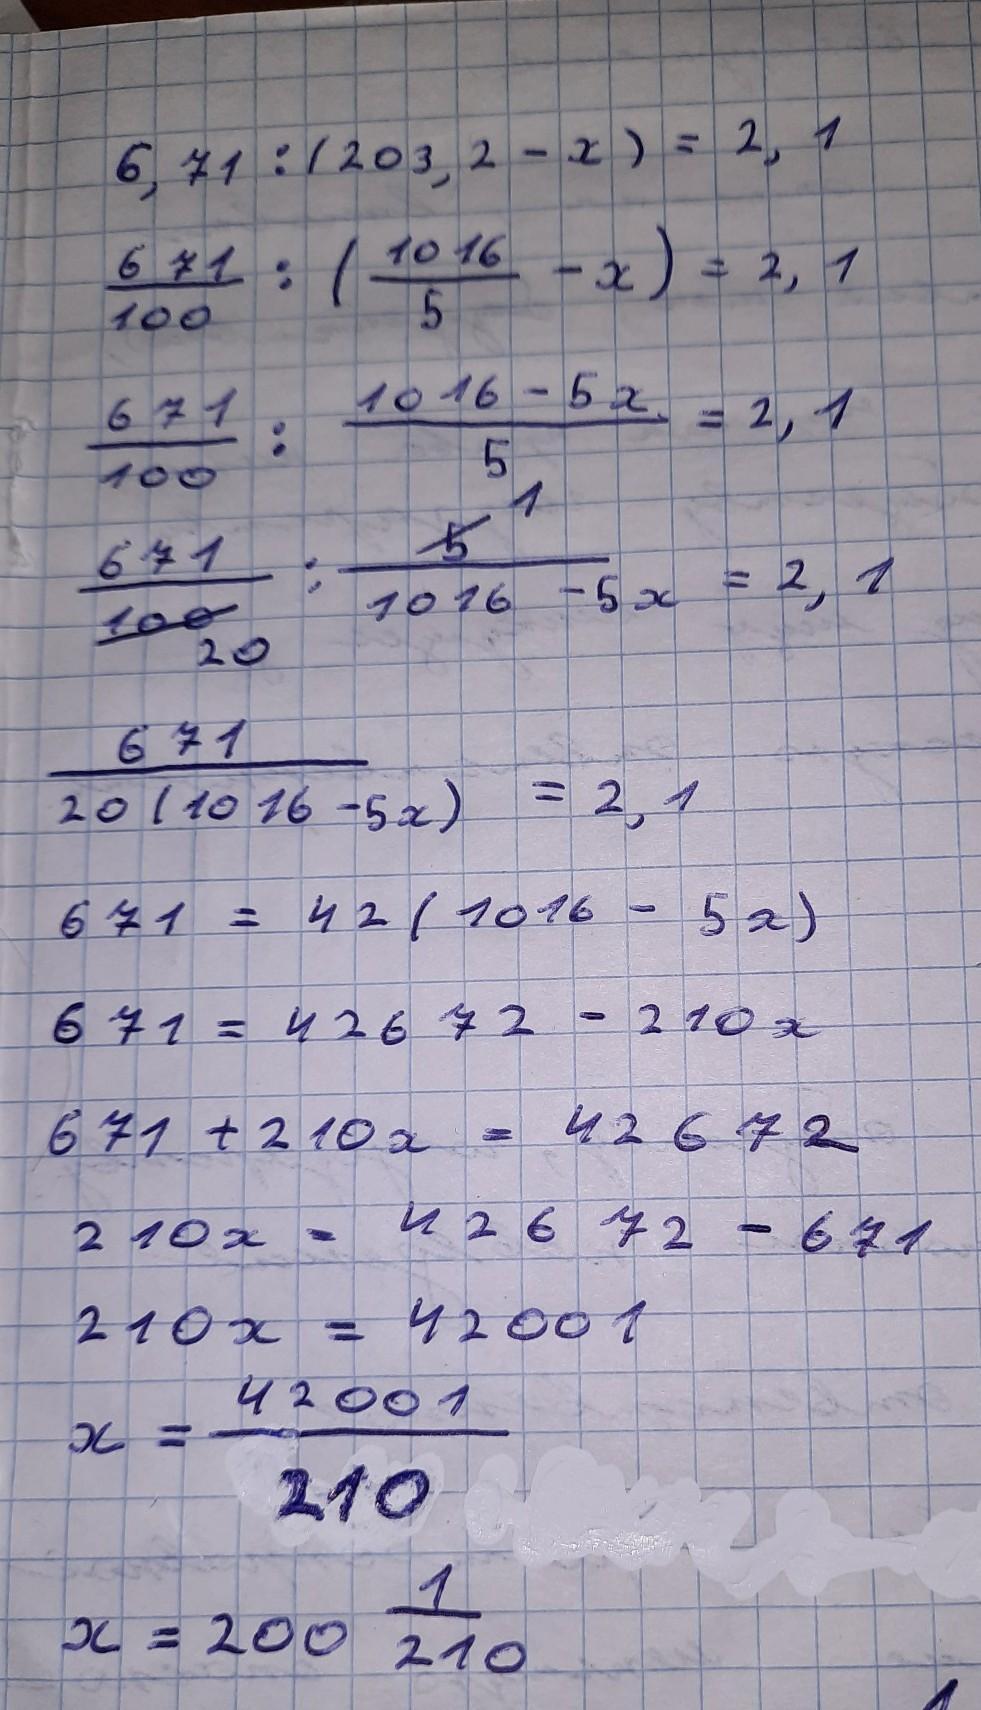 6,71 : (203,2 - x) = 2,1
671/100 : (1016/5 - x) = 2,1
671/100 : (1016 - 5x)/5 = 2,1
1
671/100 : 5/(1016 - 5x) = 2,1
20
671/(20(1016 - 5x)) = 2,1
671 = 42(1016 - 5x)
671 = 42672 - 210x
671 + 210x = 42672
210x = 42672 - 671
210x = 42001
x = 42001/210
x = 200 1/210